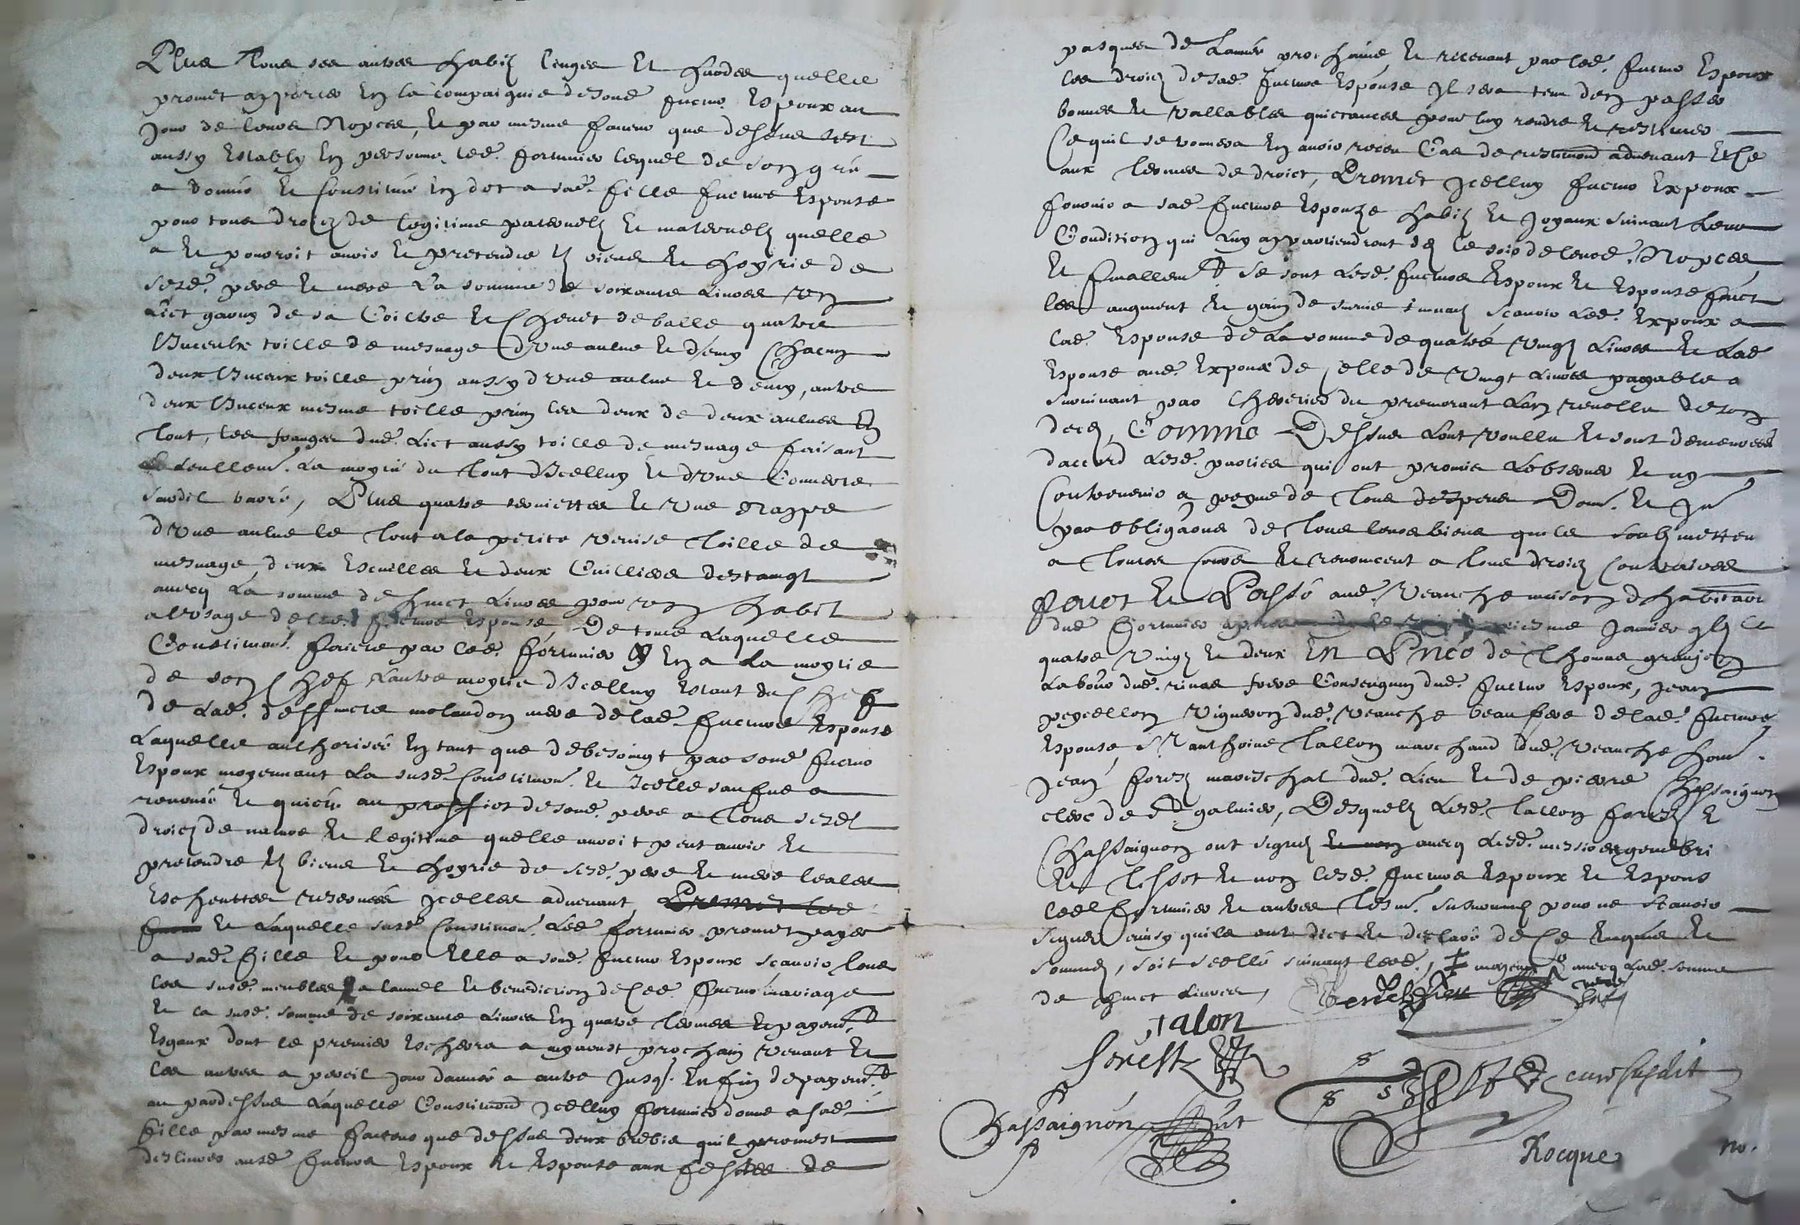 Plus tous ses autres habitz linges et hardes quelle
promet apporter en la compaignie de sond. futur espoux au
jour de leurs nopces, et par mesme faveur que dessus sest
aussy estably en personne led. fortunier lequel de son gré
a donné et constitué en dot a sad. fille future espouse
pour tous droictz de legitime paternelz et maternelz quelle
a et pourroit avoir et pretendre es biens et hoyrie de
sesd. pere et mere la somme de soixante livres un
lict garny de sa coitre et chevet de balle quatre
linceulx toille de mesnage dune aulne et demy chacun
deux linceux toille prin aussy dune aulne et demy, autre
deux linceux mesme toille prin les deux de deux aulnes en
tout, les franges dud. lict aussy toille de mesnage faisant
seullem. la moytié du tout dicelluy et dune couverte
sardil barré, Plus quatre serviettes et une nappe
dune aulne le tout a la petite venise toille de
mesnage, deux escuilles et deux cuillieres destaingt
avecq la somme de huict livres pour un habit
a lusage de lad. future espouse De toute laquelle
constitution. faicte par led. fortunier y en a la moytié
de son chef lautre moytié dicelluy estant du chef
de lad. deffuncte molandon mere de lad. future espouse
laquelle authorisée en tant que de besoingt par sond. futur
espoux moyennant la susd. constitution. et icelle sauf une a
renoncé et quicté au proffict de sond. pere a tous sesd.
droictz de nature et legitime quelle auroit peut avoir et
pretendre es biens et hoyrie de sesd. pere et mere leales
escheuttes reservées icelles advenant, Promet led.
futur et laquelle susd. constitution. led. fortunier promet payer
a sad. fille et pour elle a sond. futur espoux scavoir tous
les susd. meubles a lannel et benediction de ced. futur mariage
et la susd. somme de soixante livres en quatre termes et payem.t
esgaux dont le premier eschevra a my aoust prochain venant et
les autres a pareil jour dannée a autre jusq. en fin de payem.t
au pardessus laquelle constitution icelluy fortunier donne a sad.
fille par mesme faveur que dessus deux brebis quil promet
deslivrer ausd. futurs espoux et espouse aux festes de
pasques de lannée prochaine, et recevant par led. futur espoux
les droictz de sad. future espouse il sera tenu den passer
bonnes et vallables quictances pour luy rendre et restituer
ce quil se trouvera en avoir receu cas de restitution advenant et ce
aux termes de droict, Promet icelluy futur expoux
fournir a sad. future espouze habitz et joyaux suivant leur
condition qui luy appartiendront des le soir de leursd. nopces
et finallem.t se sont lesd. futurs espoux et espouse faict
les augment et gain de survie suivantz scavoir led. expoux a
lad. espouse de la somme de quatre vingtz livres et lad.
espouse aud. expoux de celle de vingt livres payable a
survivant par lheritier du premorant lan revollu de son
deces, Comme Dessus lont voullu et sont demeurées
daccord lesd. parties qui ont promis lobserver et ny
contrevenir a peyne de tous despens Dom. et in.
par obligaons de tous leurs biens quils soubzmetten
a toutes cours et renoncent a tous droictz contraires
Faict et Passé aud. veauche maison dhabitaon
dud. fortunier apres midy le jour janvier
quatre vingtz et deux En Pnce de thomas granjon
labour dud. rivas frere consenguin dud. futur espoux, jean
peycellon vigneron dud. veauche beau frere de lad. future
espouse, s.r anthoine tallon marchand dud. veauche hom.
jean forez mareschal dud. lieu et de pierre Chassaignon
clerc de s.t galmier, Desquelz lesd. tallon forez et
Chassaignon ont signez avecq lesd. messire genebri
et tissot et non lesd. futurs espoux et espous
led. fortunier et autres tesm. susnommés pour ne scavoir
signer ainsy quils ont dict et declaré de ce enquis et
sommez, soit scellé suivant led. avecq lad. somme
de huict livres
talon
forest
Chassaignon
curé susdit
Rocque
no.